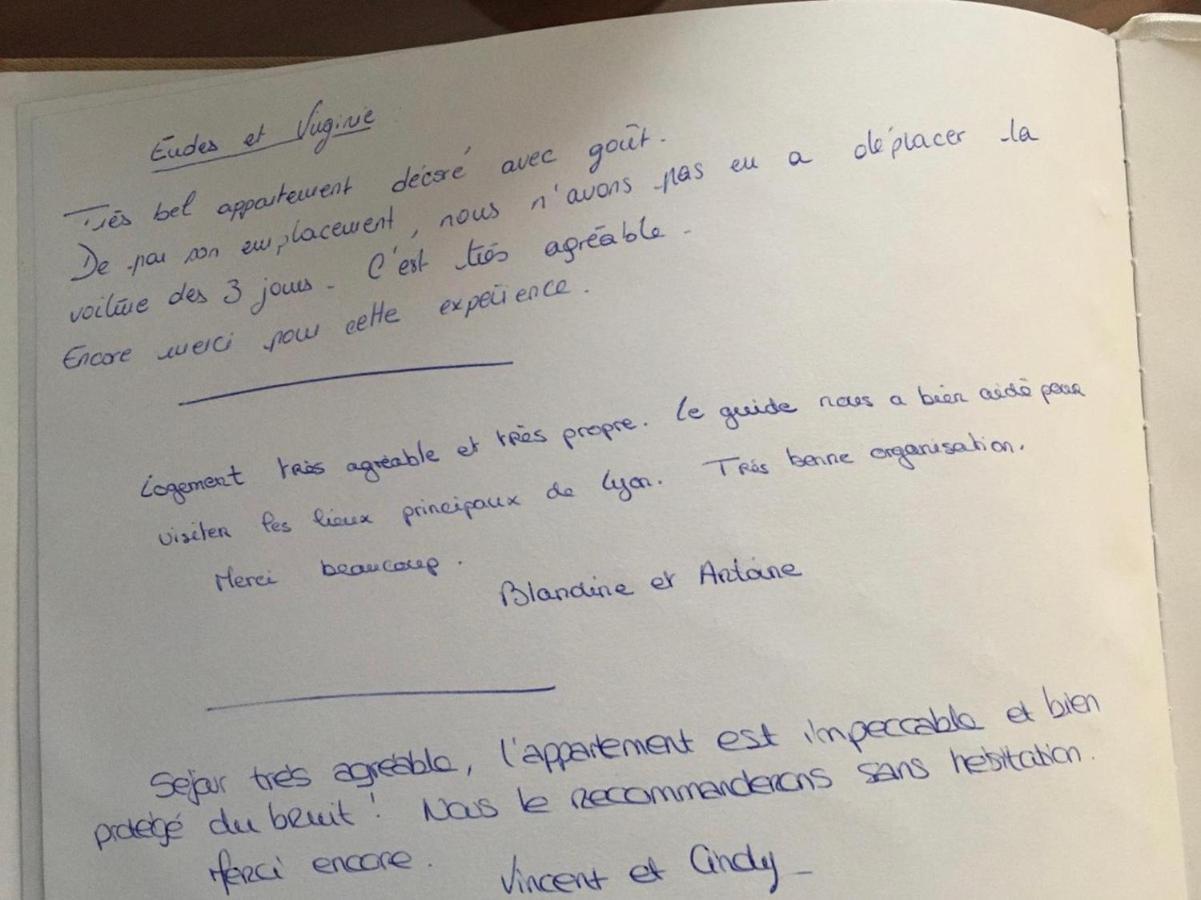 Eudes et Virginie
Très bel appartement décoré avec goût.
De par son emplacement, nous n'avons pas eu a déplacer la
voiture des 3 jours. C'est très agréable.
Encore merci pour cette expérience.
Logement très agréable et très propre. Le guide nous a bien aidé pour
visiter les lieux principaux de Lyon. Très bonne organisation.
Merci beaucoup.
Blandine et Antoine
Sejour très agréable, l'appartement est impeccable et bien
protégé du bruit ! Nous le recommanderons sans hesitation.
Merci encore.
Vincent et Cindy